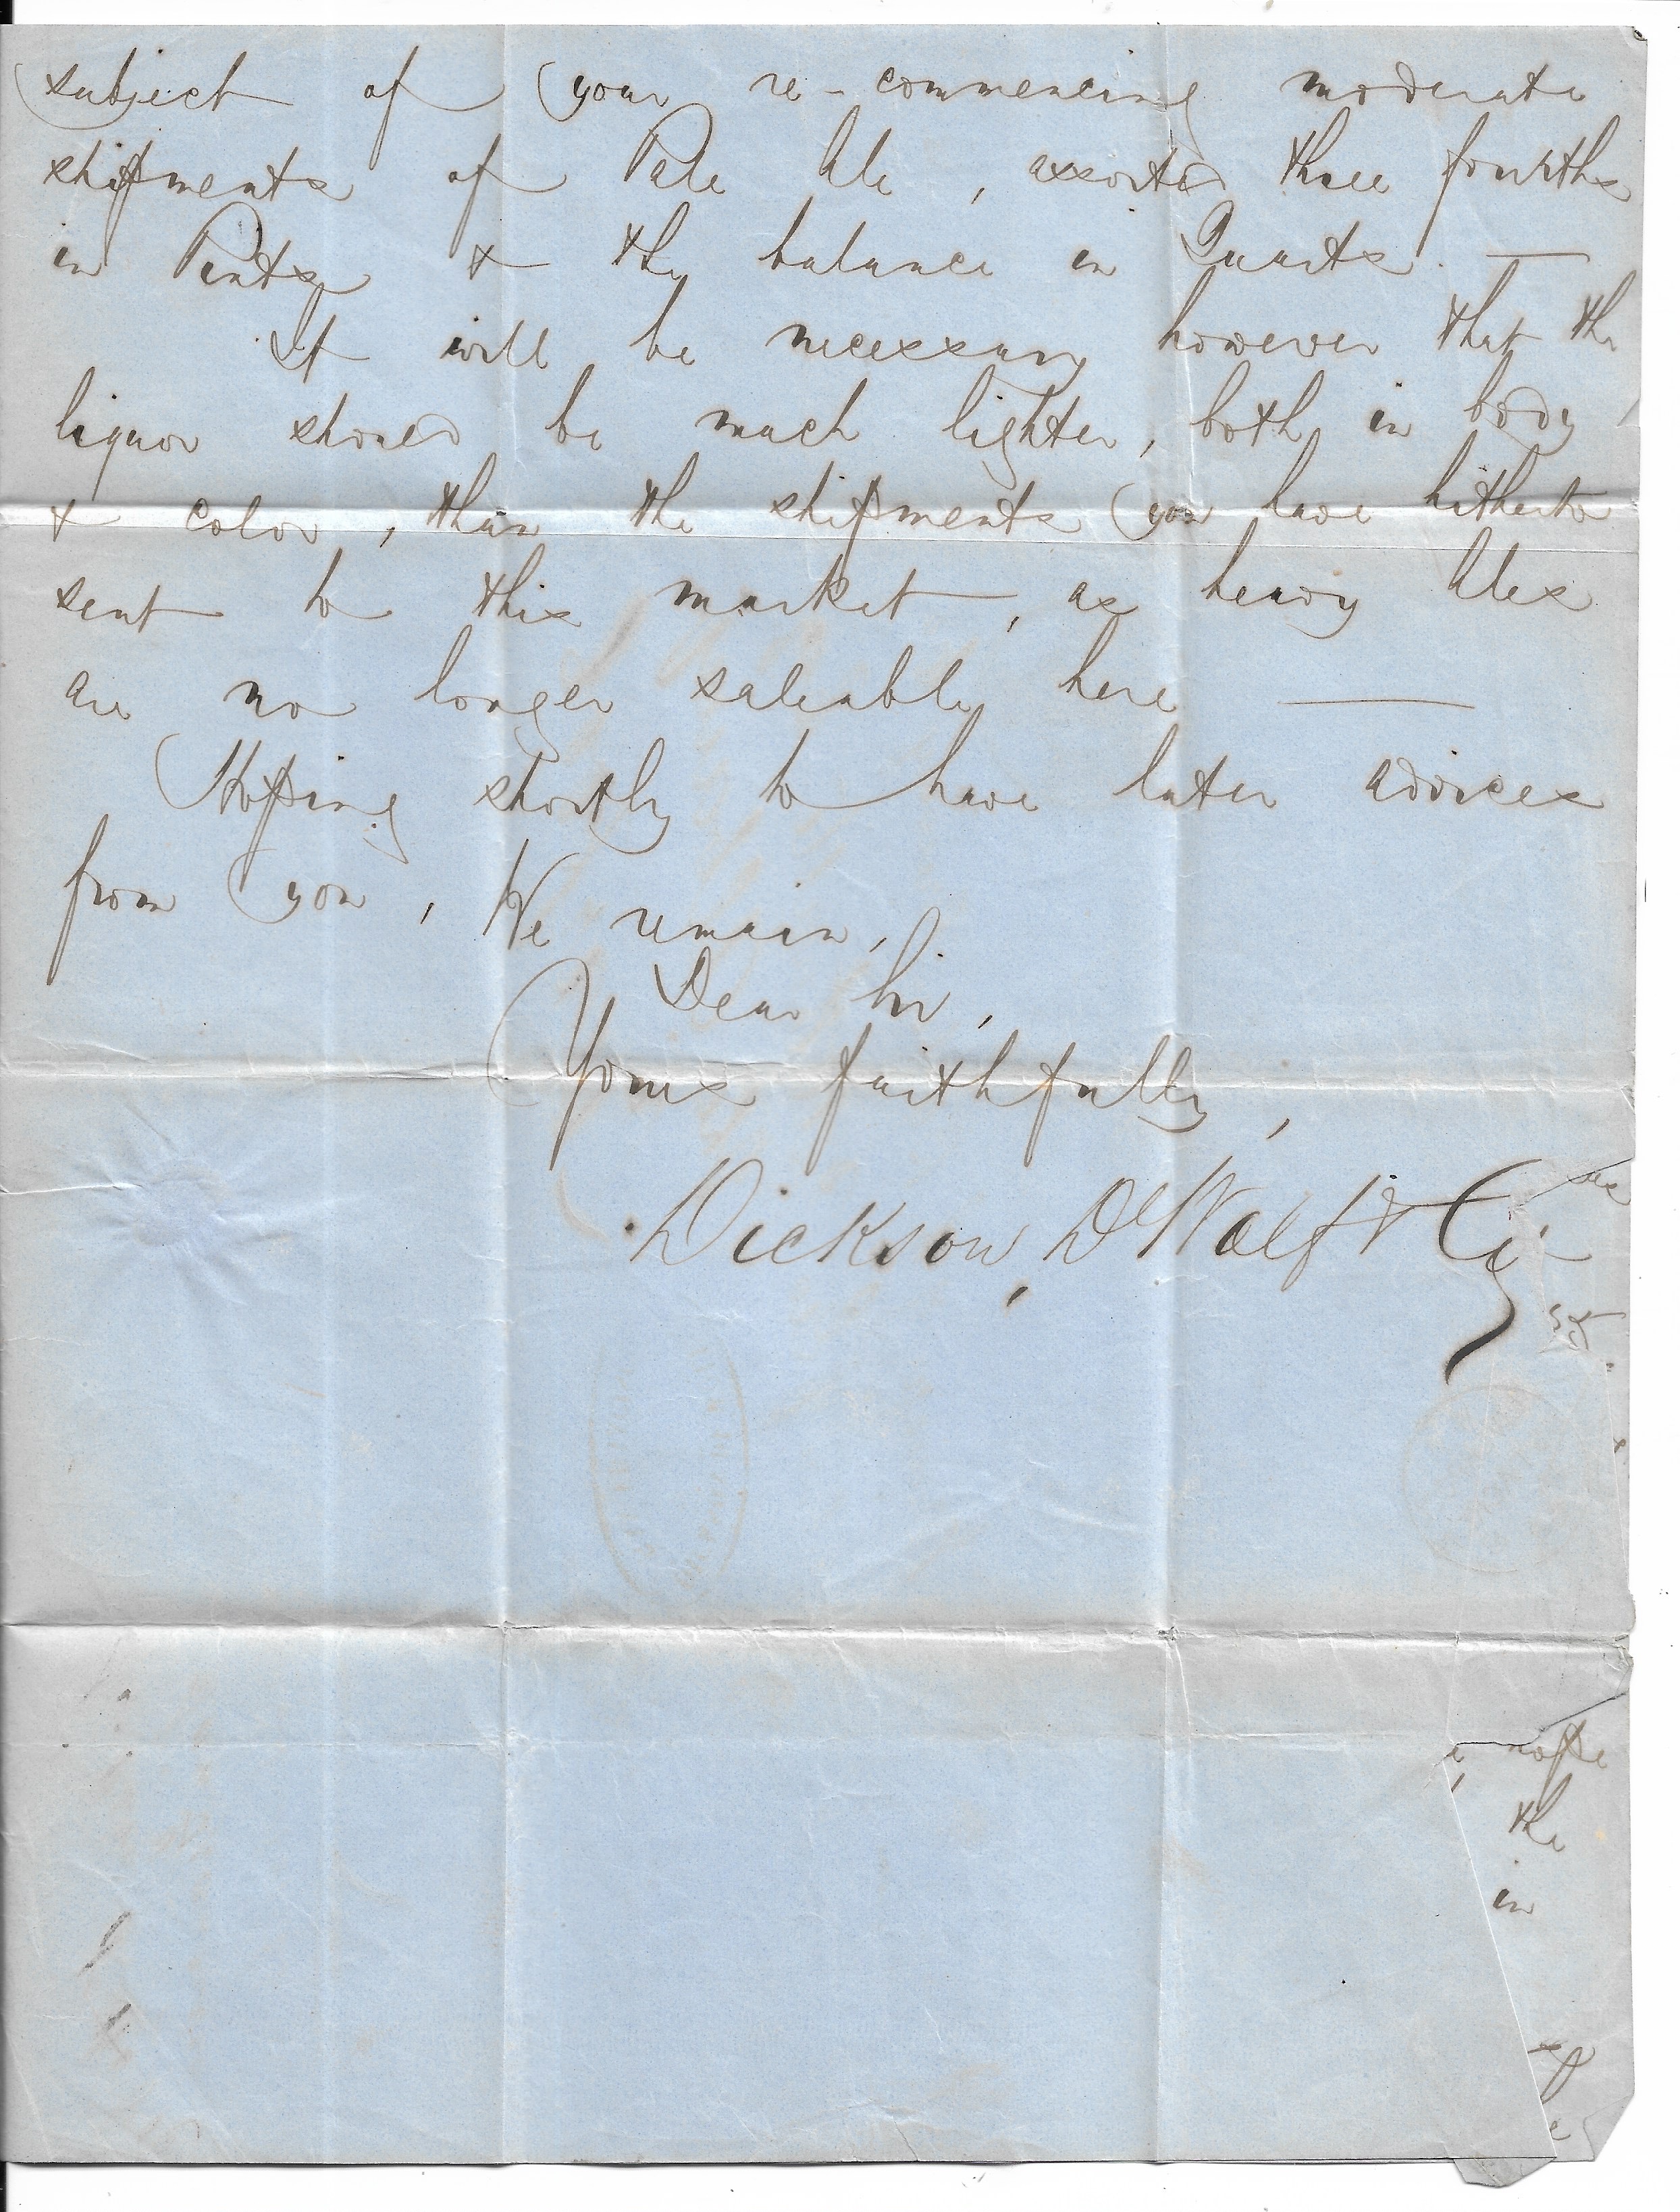 subject of your re-commencing moderate
shipments of Pale Ale, assorted three fourths
in Pints & the balance in Quarts. —
It will be necessary however that the
liquor should be much lighter, both in body
& color, than the shipments you have hitherto
sent to this market, as heavy Ales
are no longer saleable here —
Hoping shortly to have later advices
from you, We remain,
Dear Sir,
Yours faithfully,
Dickson, DeWolf & Co
the
in